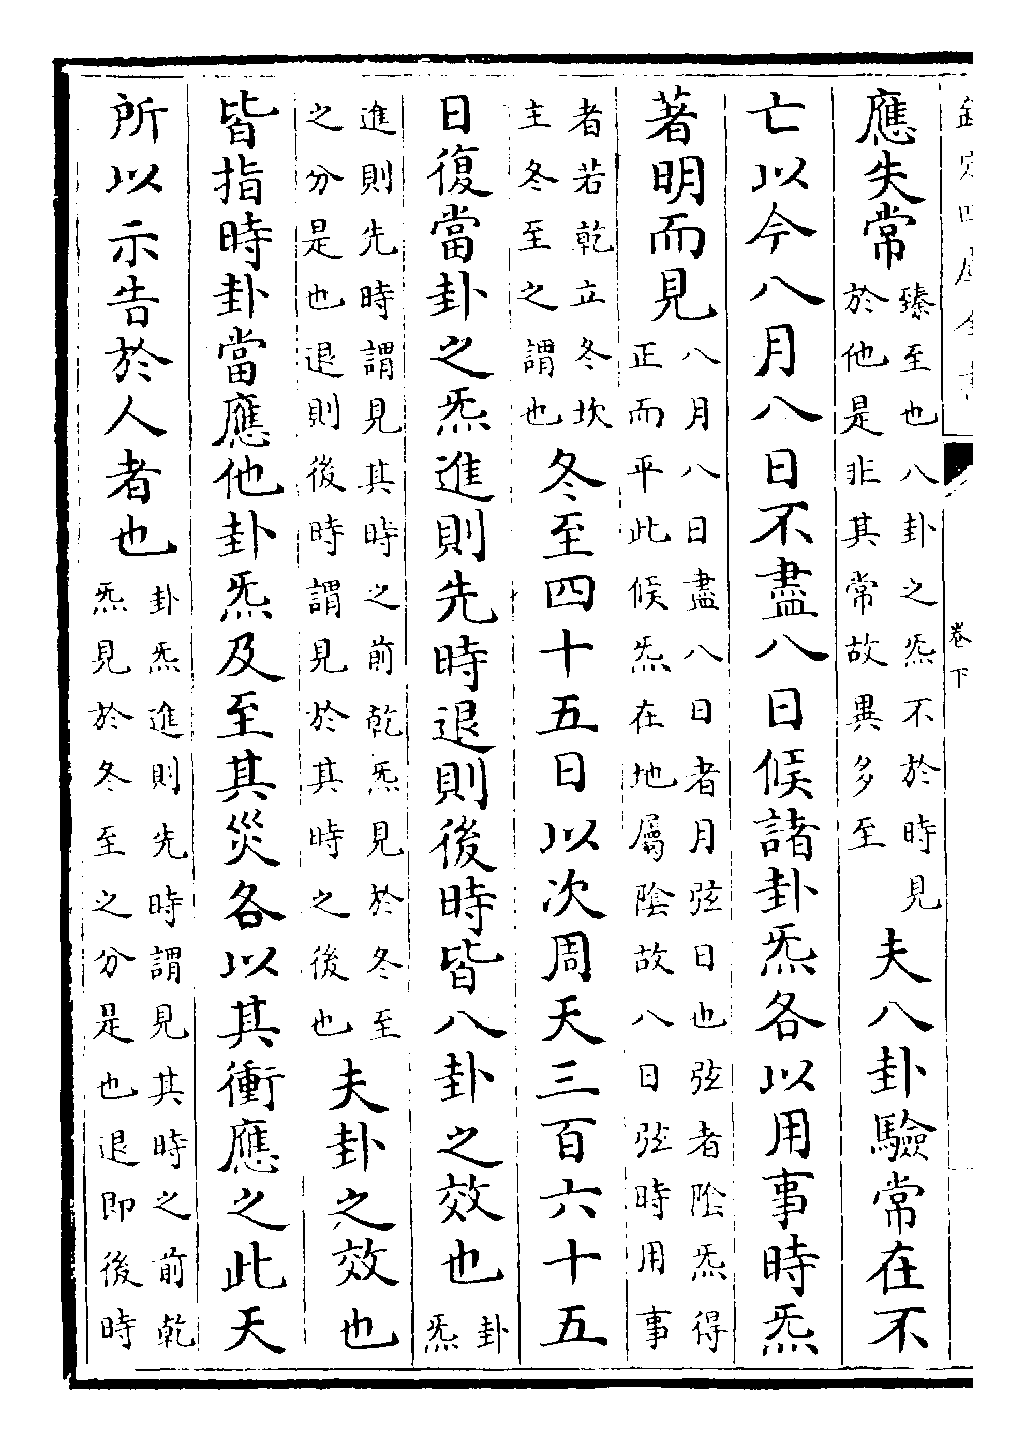 欽定四庫全書
卷下
應失常臻至也八卦之炁不於時見於他是非其常故異多至夫八卦驗常在不
亡以今八月八日不盡八日候諸卦炁各以用事時炁
著明而見八月八日盡八日者月弦日也弦者陰炁得正而平此候炁在地屬陰故八日弦時用事
者若乾立冬坎主冬至之謂也冬至四十五日以次周天三百六十五
日復當卦之炁進則先時退則後時皆八卦之效也卦炁
進則先時謂見其時之前乾炁見於冬至之分是也退則後時謂見於其時之後也夫卦之效也
皆指時卦當應他卦炁及至其災各以其衝應之此天
所以示告於人者也卦炁進則先時謂見其時之前乾炁見於冬至之分是也退即後時